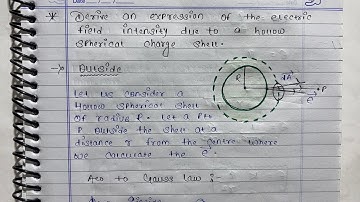 * Derive an expression of the electric
field intensity due to a hollow
spherical charge shell.
→ Outside
Let us consider a
Hollow spherical shell
of radius R. Let a pt.
P outside the shell at a
distance r from the centre where
we calculate the E.
Acc to Gauss law ;
R
P